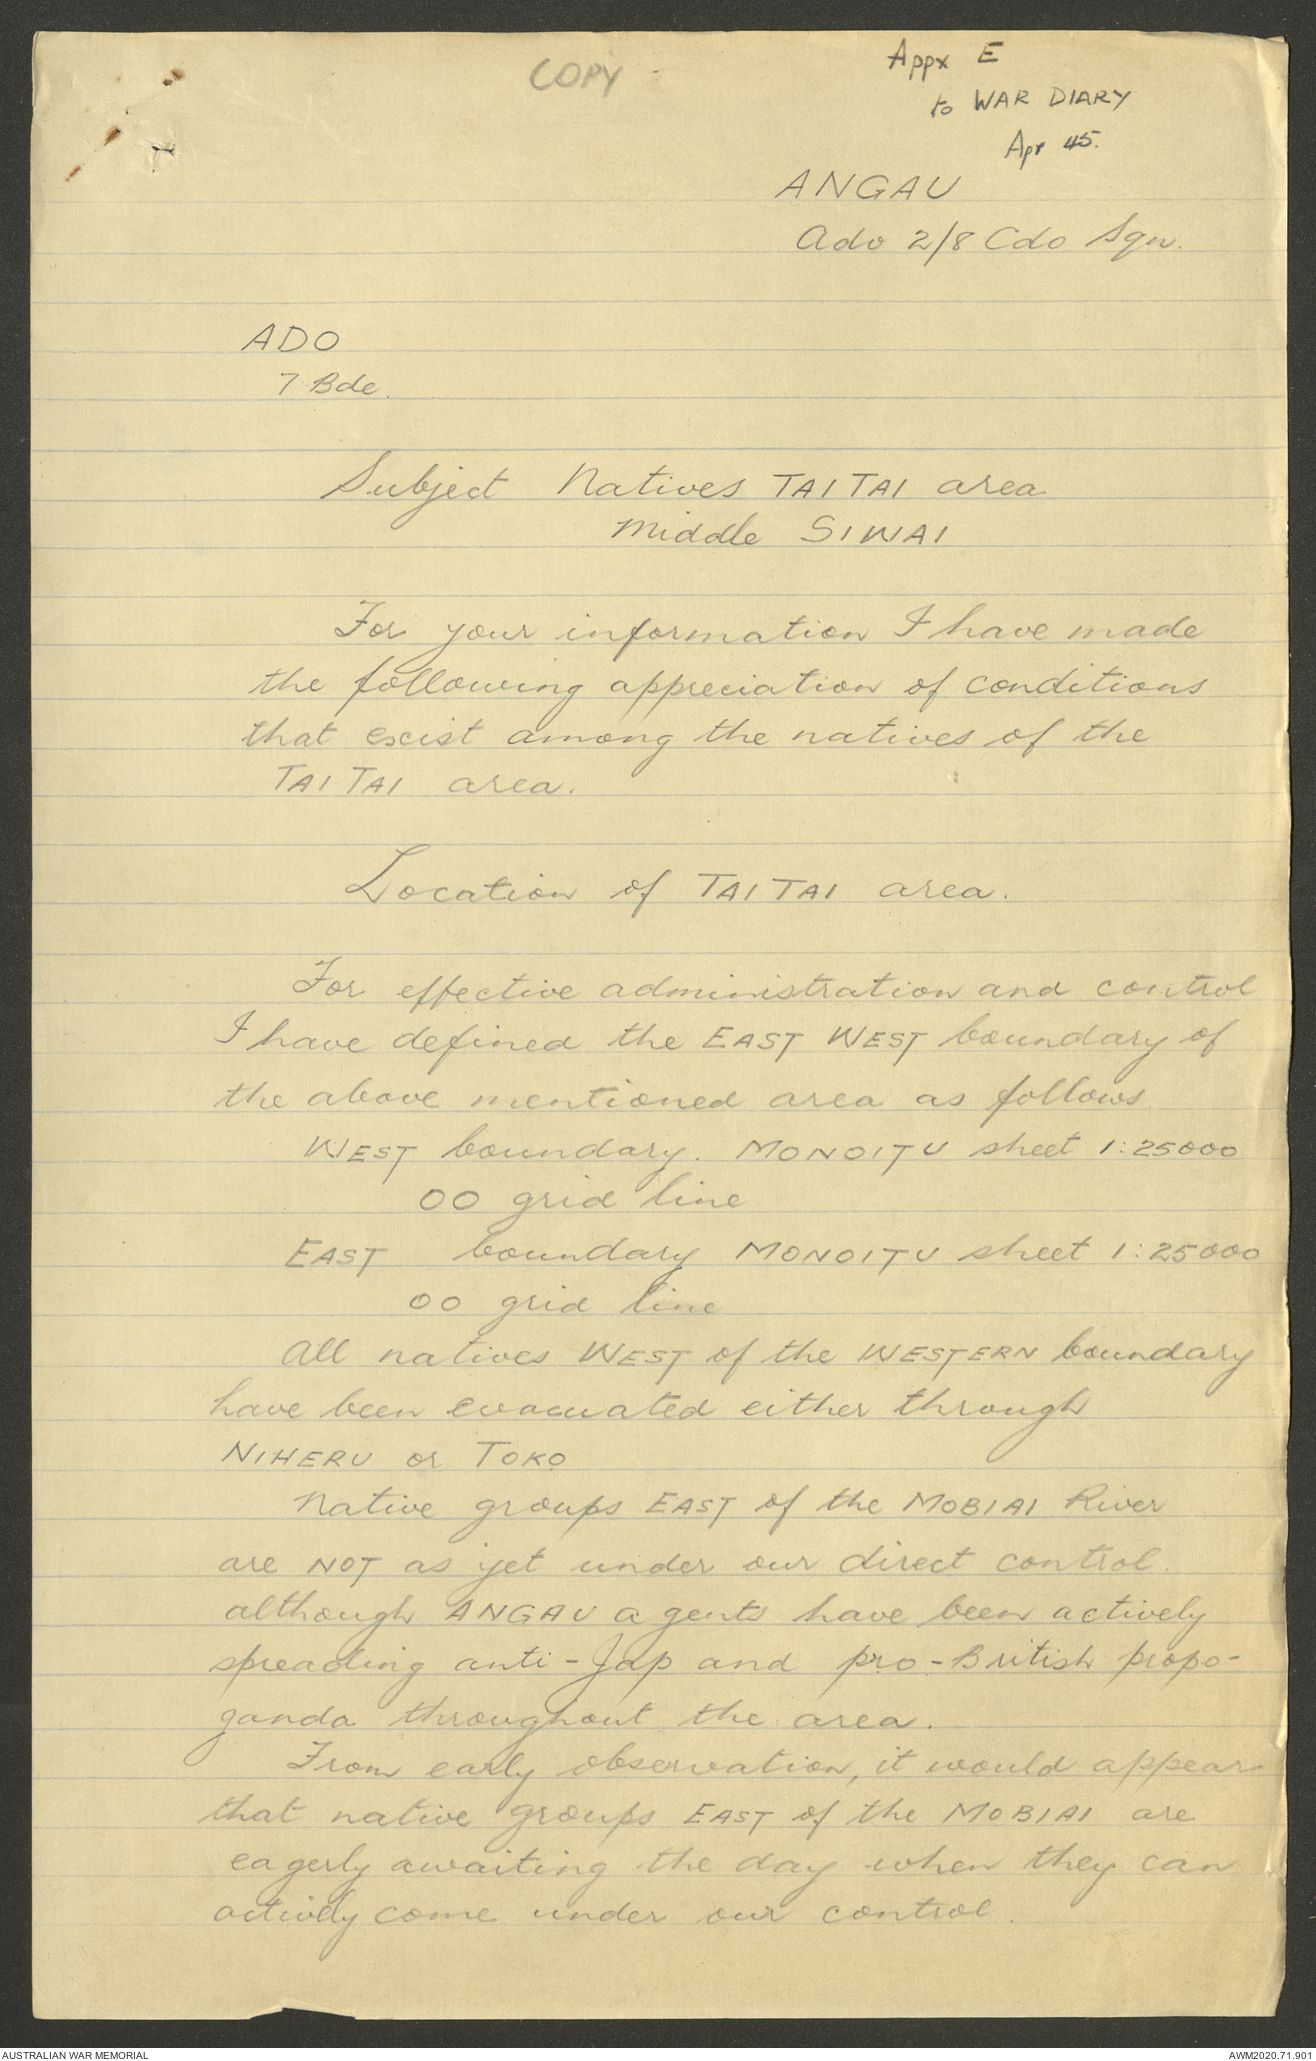 COPY
Appx E
to WAR DIARY
Apr 45.
ANGAU
Ado 2/8 Cdo Sqn.
ADO
7 Bde.
Subject Natives TAITAI area
Middle SIWAI
For your information I have made
the following appreciation of conditions
that exist among the natives of the
TAITAI area.
Location of TAITAI area.
For effective administration and control
I have defined the EAST WEST boundary of
the above mentioned area as follows
WEST boundary. MONOITU sheet 1:25000
00 grid line
EAST boundary MONOITU sheet 1:25000
00 grid line
All natives WEST of the WESTERN boundary
have been evacuated either through
NIHERU or TOKO
Native groups EAST of the MOBIAI River
are NOT as yet under our direct control.
although ANGAU agents have been actively
spreading anti-Jap and pro-British propo-
ganda throughout the area.
From early observation, it would appear
that native groups EAST of the MOBIAI are
eagerly awaiting the day when they can
actively come under our control.
AUSTRALIAN WAR MEMORIAL
AWM2020.71.901